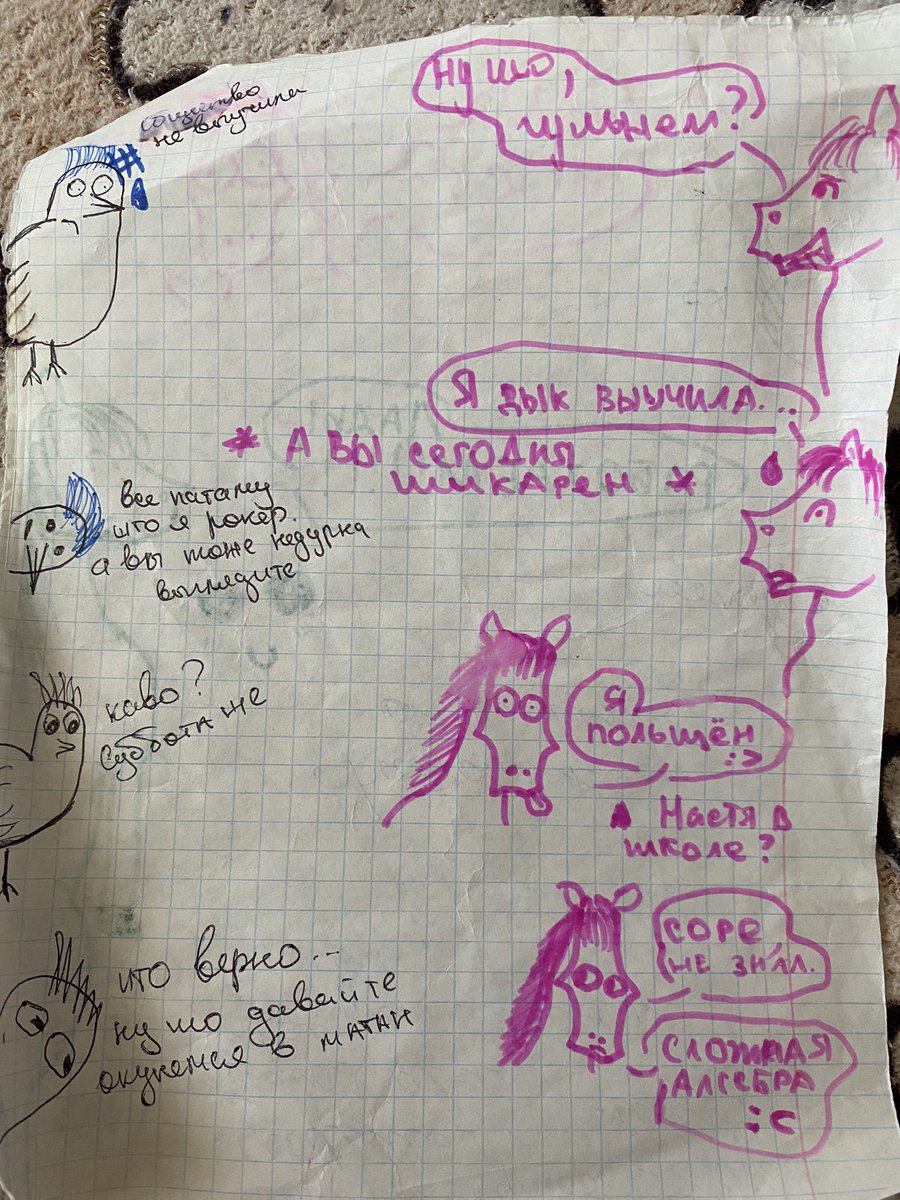 Ну шо,
гульнем?
общество
не выучила
Я дык выучила...
* А вы сегодня
шикарен *
все патаму
што я рокер.
а вы тоже недурка
выглядите
Я
польщён
:>
каво?
суббота же
Настя в
школе?
соре,
не знал.
что верно...
ну шо давайте
окунемся в матан
сложная
алгебра
:с